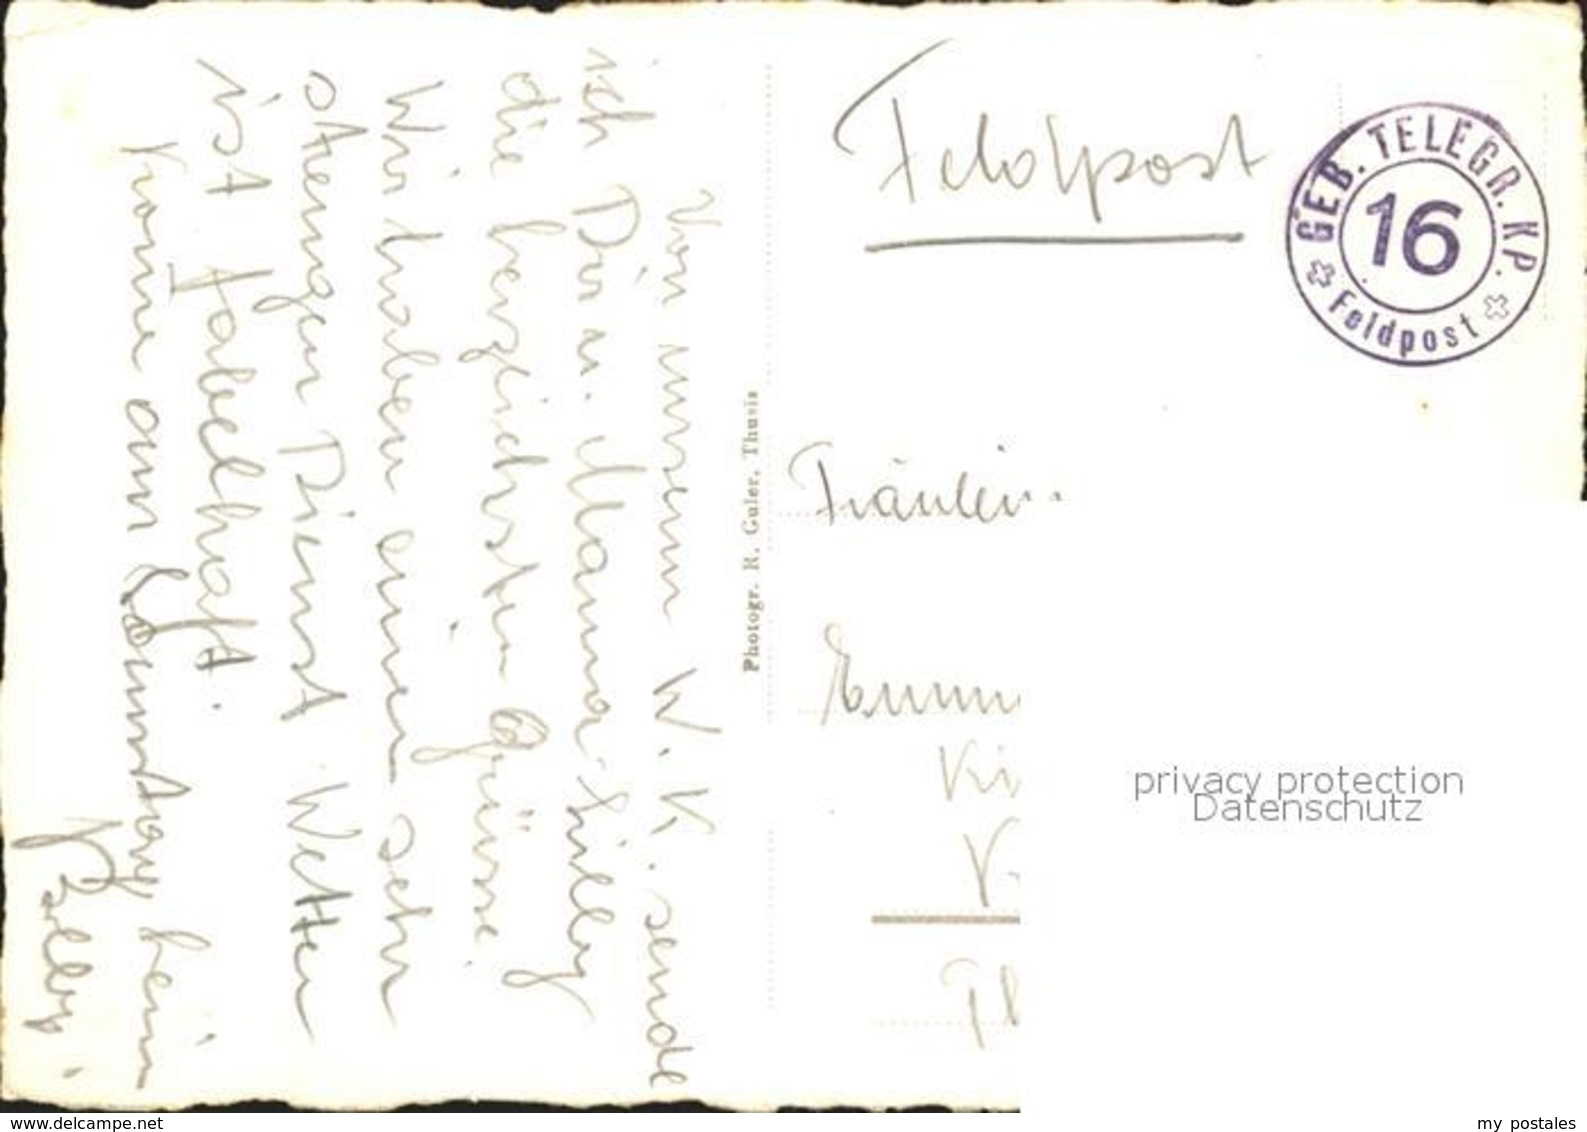 Von unserm W.K. sende
ich Dir u. Mama Hilly
die herzlichsten Grüsse.
Wir haben einen sehr
strengen Dienst. Wetter
ist fabelhaft.
Komme am Samstag heim
Photogr. R. Guler, Thusis
Feldpost
GEB. TELEGR. KP.
16
Feldpost
Fräulein
privacy protection
Datenschutz
www.delcampe.net
my postales